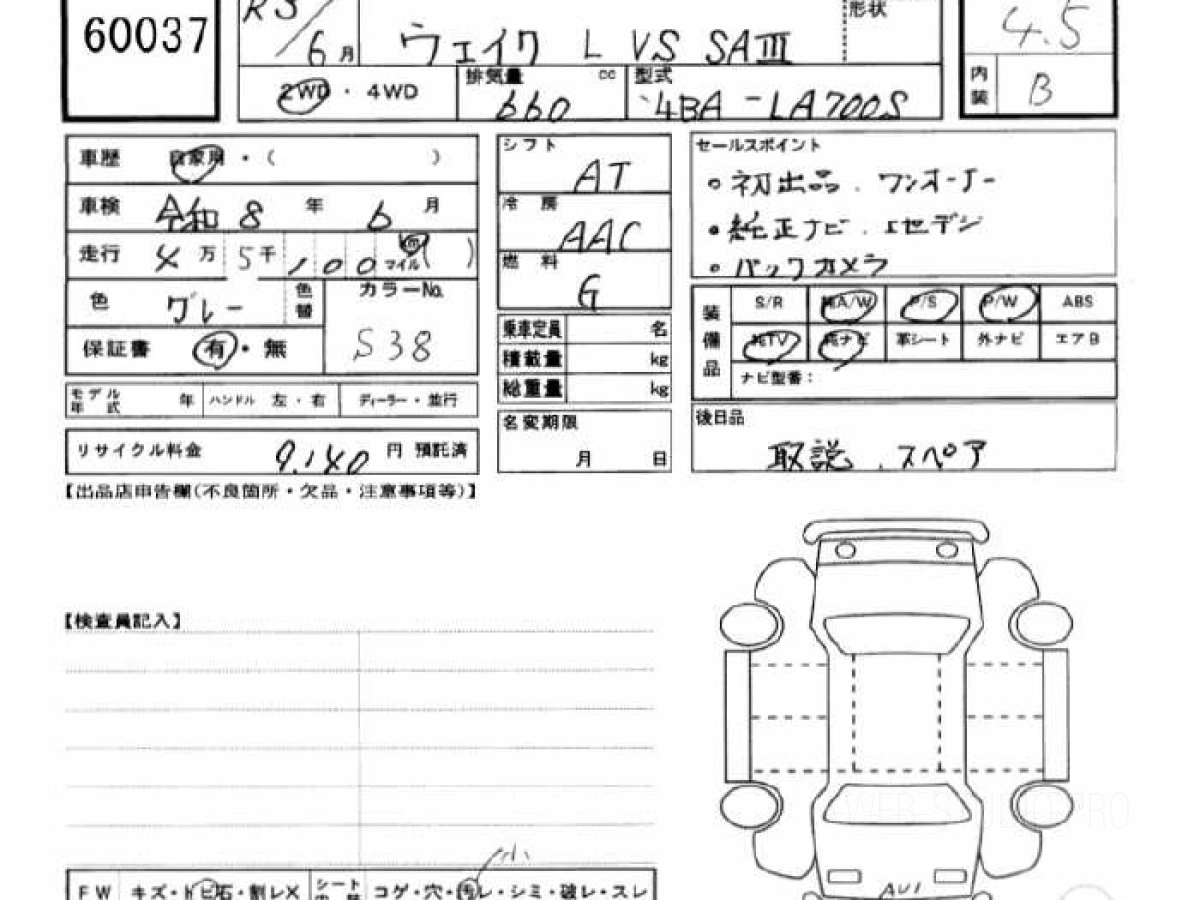 60037
R3/6月
ウェイク L VS SAⅢ
形状
4.5
2WD・4WD
排気量 660 cc
型式 4BA-LA700S
内装 B
車歴 自家用・( )
車検 令和 8 年 6 月
走行 4 万 5 千 100 km マイル( )
色 グレー 色替
カラーNo. S38
保証書 有・無
モデル年式 年 ハンドル 左・右 ディーラー・並行
リサイクル料金 9,140 円 預託済
シフト AT
冷房 AAC
燃料 G
乗車定員 名
積載量 kg
総重量 kg
名変期限
月 日
セールスポイント
・初出品、ワンオーナー
・純正ナビ、フルセグデジ
・バックカメラ
装備品
S/R AA/W P/S P/W ABS
純TV 純ナビ 革シート 外ナビ エアB
ナビ型番:
後日品
取説、スペア
【出品店申告欄(不良箇所・欠品・注意事項等)】
【検査員記入】
小
FW キズ・トビ石・割レX シート内装 コゲ・穴・汚レ・シミ・破レ・スレ
AU1
WEB STUDIO PRO